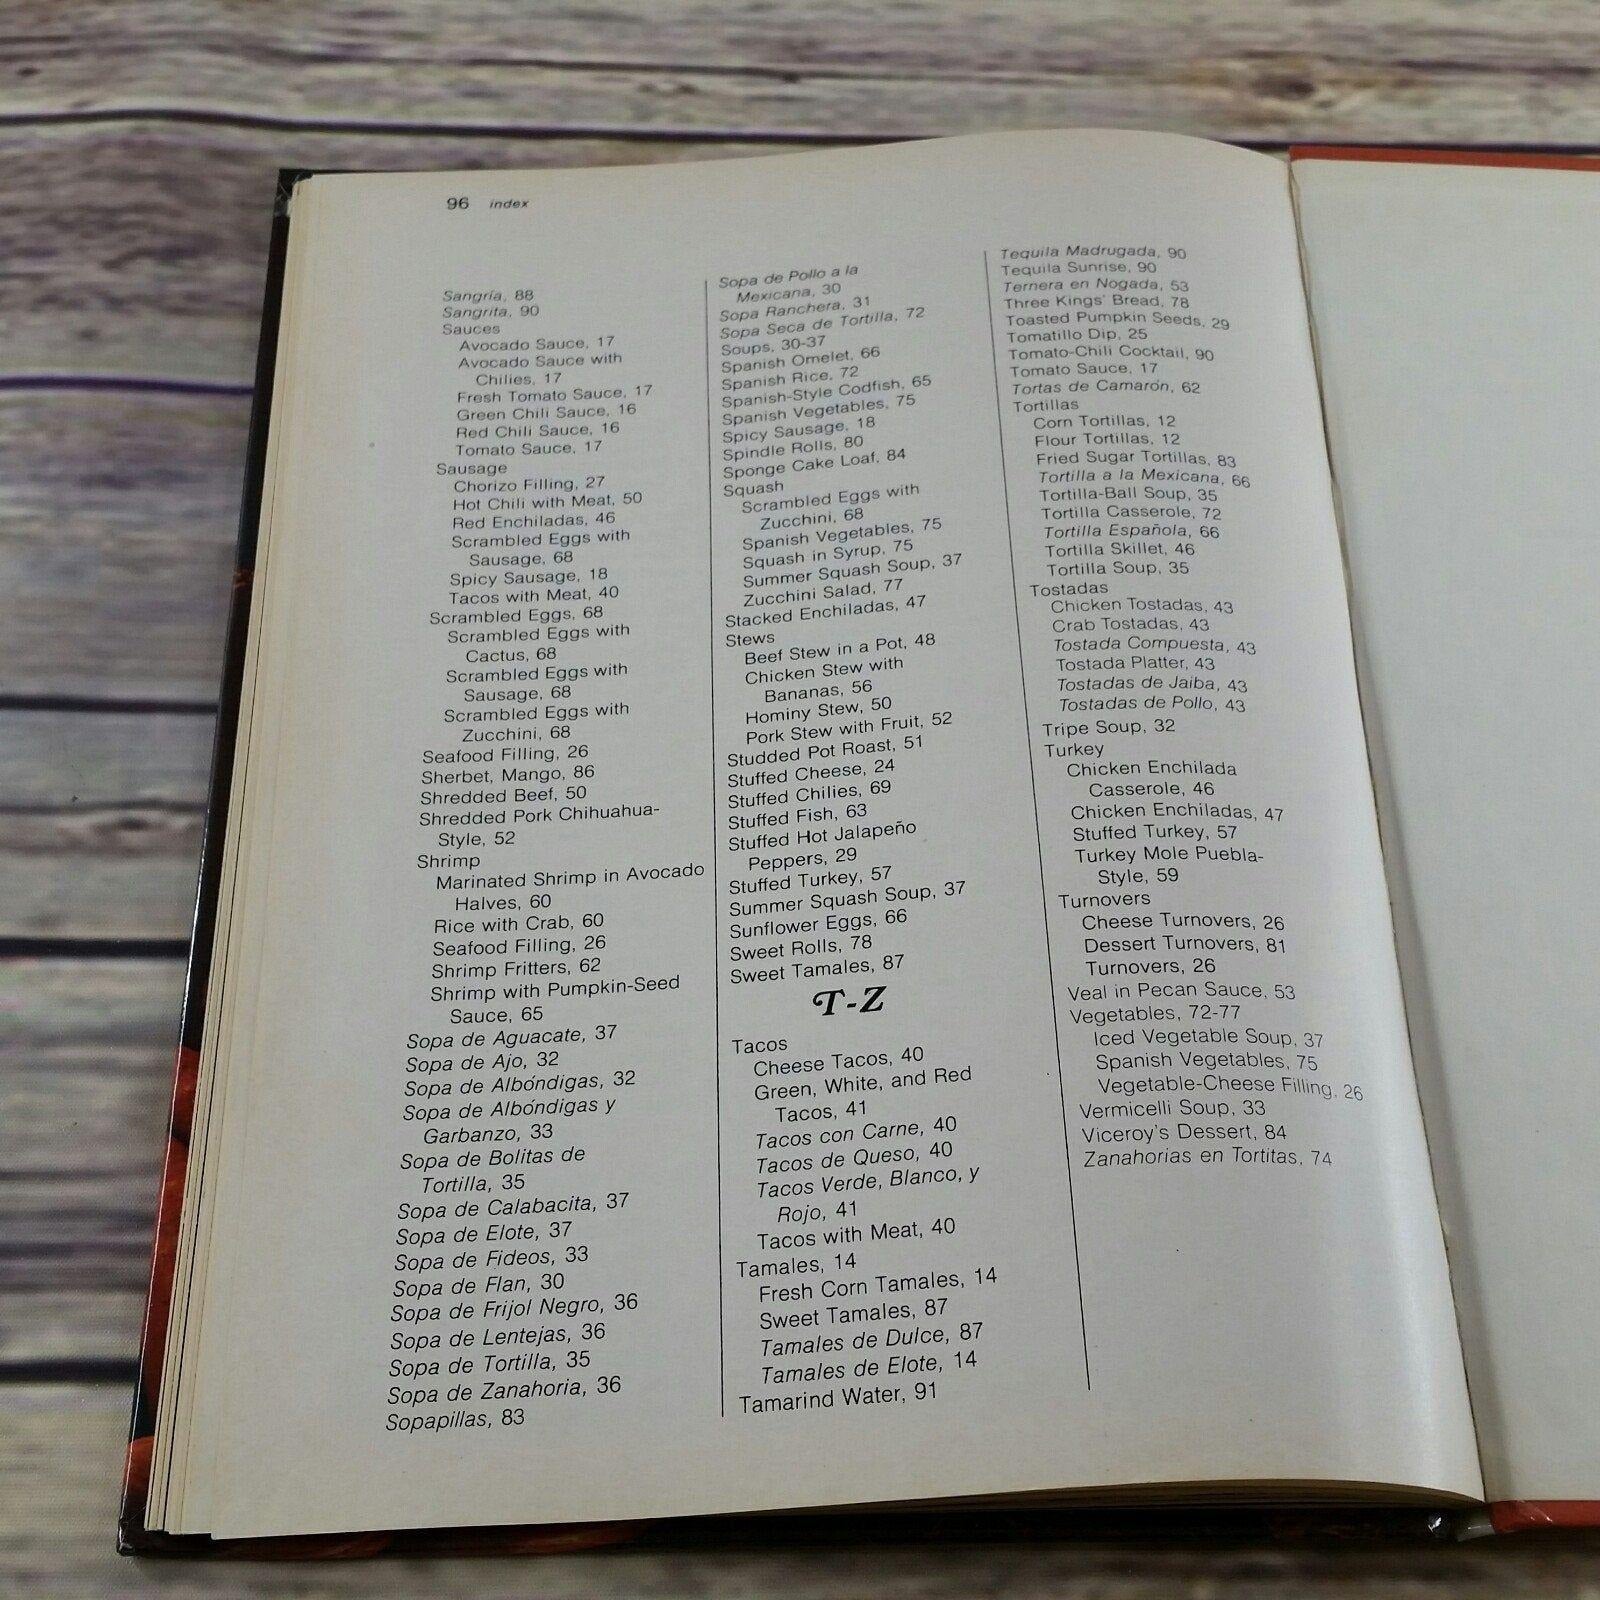 96 index
Sangría, 88
Sangrita, 90
Sauces
Avocado Sauce, 17
Avocado Sauce with
Chilies, 17
Fresh Tomato Sauce, 17
Green Chili Sauce, 16
Red Chili Sauce, 16
Tomato Sauce, 17
Sausage
Chorizo Filling, 27
Hot Chili with Meat, 50
Red Enchiladas, 46
Scrambled Eggs with
Sausage, 68
Spicy Sausage, 18
Tacos with Meat, 40
Scrambled Eggs, 68
Scrambled Eggs with
Cactus, 68
Scrambled Eggs with
Sausage, 68
Scrambled Eggs with
Zucchini, 68
Seafood Filling, 26
Sherbet, Mango, 86
Shredded Beef, 50
Shredded Pork Chihuahua-
Style, 52
Shrimp
Marinated Shrimp in Avocado
Halves, 60
Rice with Crab, 60
Seafood Filling, 26
Shrimp Fritters, 62
Shrimp with Pumpkin-Seed
Sauce, 65
Sopa de Aguacate, 37
Sopa de Ajo, 32
Sopa de Albóndigas, 32
Sopa de Albóndigas y
Garbanzo, 33
Sopa de Bolitas de
Tortilla, 35
Sopa de Calabacita, 37
Sopa de Elote, 37
Sopa de Fideos, 33
Sopa de Flan, 30
Sopa de Frijol Negro, 36
Sopa de Lentejas, 36
Sopa de Tortilla, 35
Sopa de Zanahoria, 36
Sopapillas, 83
Sopa de Pollo a la
Mexicana, 30
Sopa Ranchera, 31
Sopa Seca de Tortilla, 72
Soups, 30-37
Spanish Omelet, 66
Spanish Rice, 72
Spanish-Style Codfish, 65
Spanish Vegetables, 75
Spicy Sausage, 18
Spindle Rolls, 80
Sponge Cake Loaf, 84
Squash
Scrambled Eggs with
Zucchini, 68
Spanish Vegetables, 75
Squash in Syrup, 75
Summer Squash Soup, 37
Zucchini Salad, 77
Stacked Enchiladas, 47
Stews
Beef Stew in a Pot, 48
Chicken Stew with
Bananas, 56
Hominy Stew, 50
Pork Stew with Fruit, 52
Studded Pot Roast, 51
Stuffed Cheese, 24
Stuffed Chilies, 69
Stuffed Fish, 63
Stuffed Hot Jalapeño
Peppers, 29
Stuffed Turkey, 57
Summer Squash Soup, 37
Sunflower Eggs, 66
Sweet Rolls, 78
Sweet Tamales, 87
T-Z
Tacos
Cheese Tacos, 40
Green, White, and Red
Tacos, 41
Tacos con Carne, 40
Tacos de Queso, 40
Tacos Verde, Blanco, y
Rojo, 41
Tacos with Meat, 40
Tamales, 14
Fresh Corn Tamales, 14
Sweet Tamales, 87
Tamales de Dulce, 87
Tamales de Elote, 14
Tamarind Water, 91
Tequila Madrugada, 90
Tequila Sunrise, 90
Ternera en Nogada, 53
Three Kings' Bread, 78
Toasted Pumpkin Seeds, 29
Tomatillo Dip, 25
Tomato-Chili Cocktail, 90
Tomato Sauce, 17
Tortas de Camarón, 62
Tortillas
Corn Tortillas, 12
Flour Tortillas, 12
Fried Sugar Tortillas, 83
Tortilla a la Mexicana, 66
Tortilla-Ball Soup, 35
Tortilla Casserole, 72
Tortilla Española, 66
Tortilla Skillet, 46
Tortilla Soup, 35
Tostadas
Chicken Tostadas, 43
Crab Tostadas, 43
Tostada Compuesta, 43
Tostada Platter, 43
Tostadas de Jaiba, 43
Tostadas de Pollo, 43
Tripe Soup, 32
Turkey
Chicken Enchilada
Casserole, 46
Chicken Enchiladas, 47
Stuffed Turkey, 57
Turkey Mole Puebla-
Style, 59
Turnovers
Cheese Turnovers, 26
Dessert Turnovers, 81
Turnovers, 26
Veal in Pecan Sauce, 53
Vegetables, 72-77
Iced Vegetable Soup, 37
Spanish Vegetables, 75
Vegetable-Cheese Filling, 26
Vermicelli Soup, 33
Viceroy's Dessert, 84
Zanahorias en Tortitas, 74